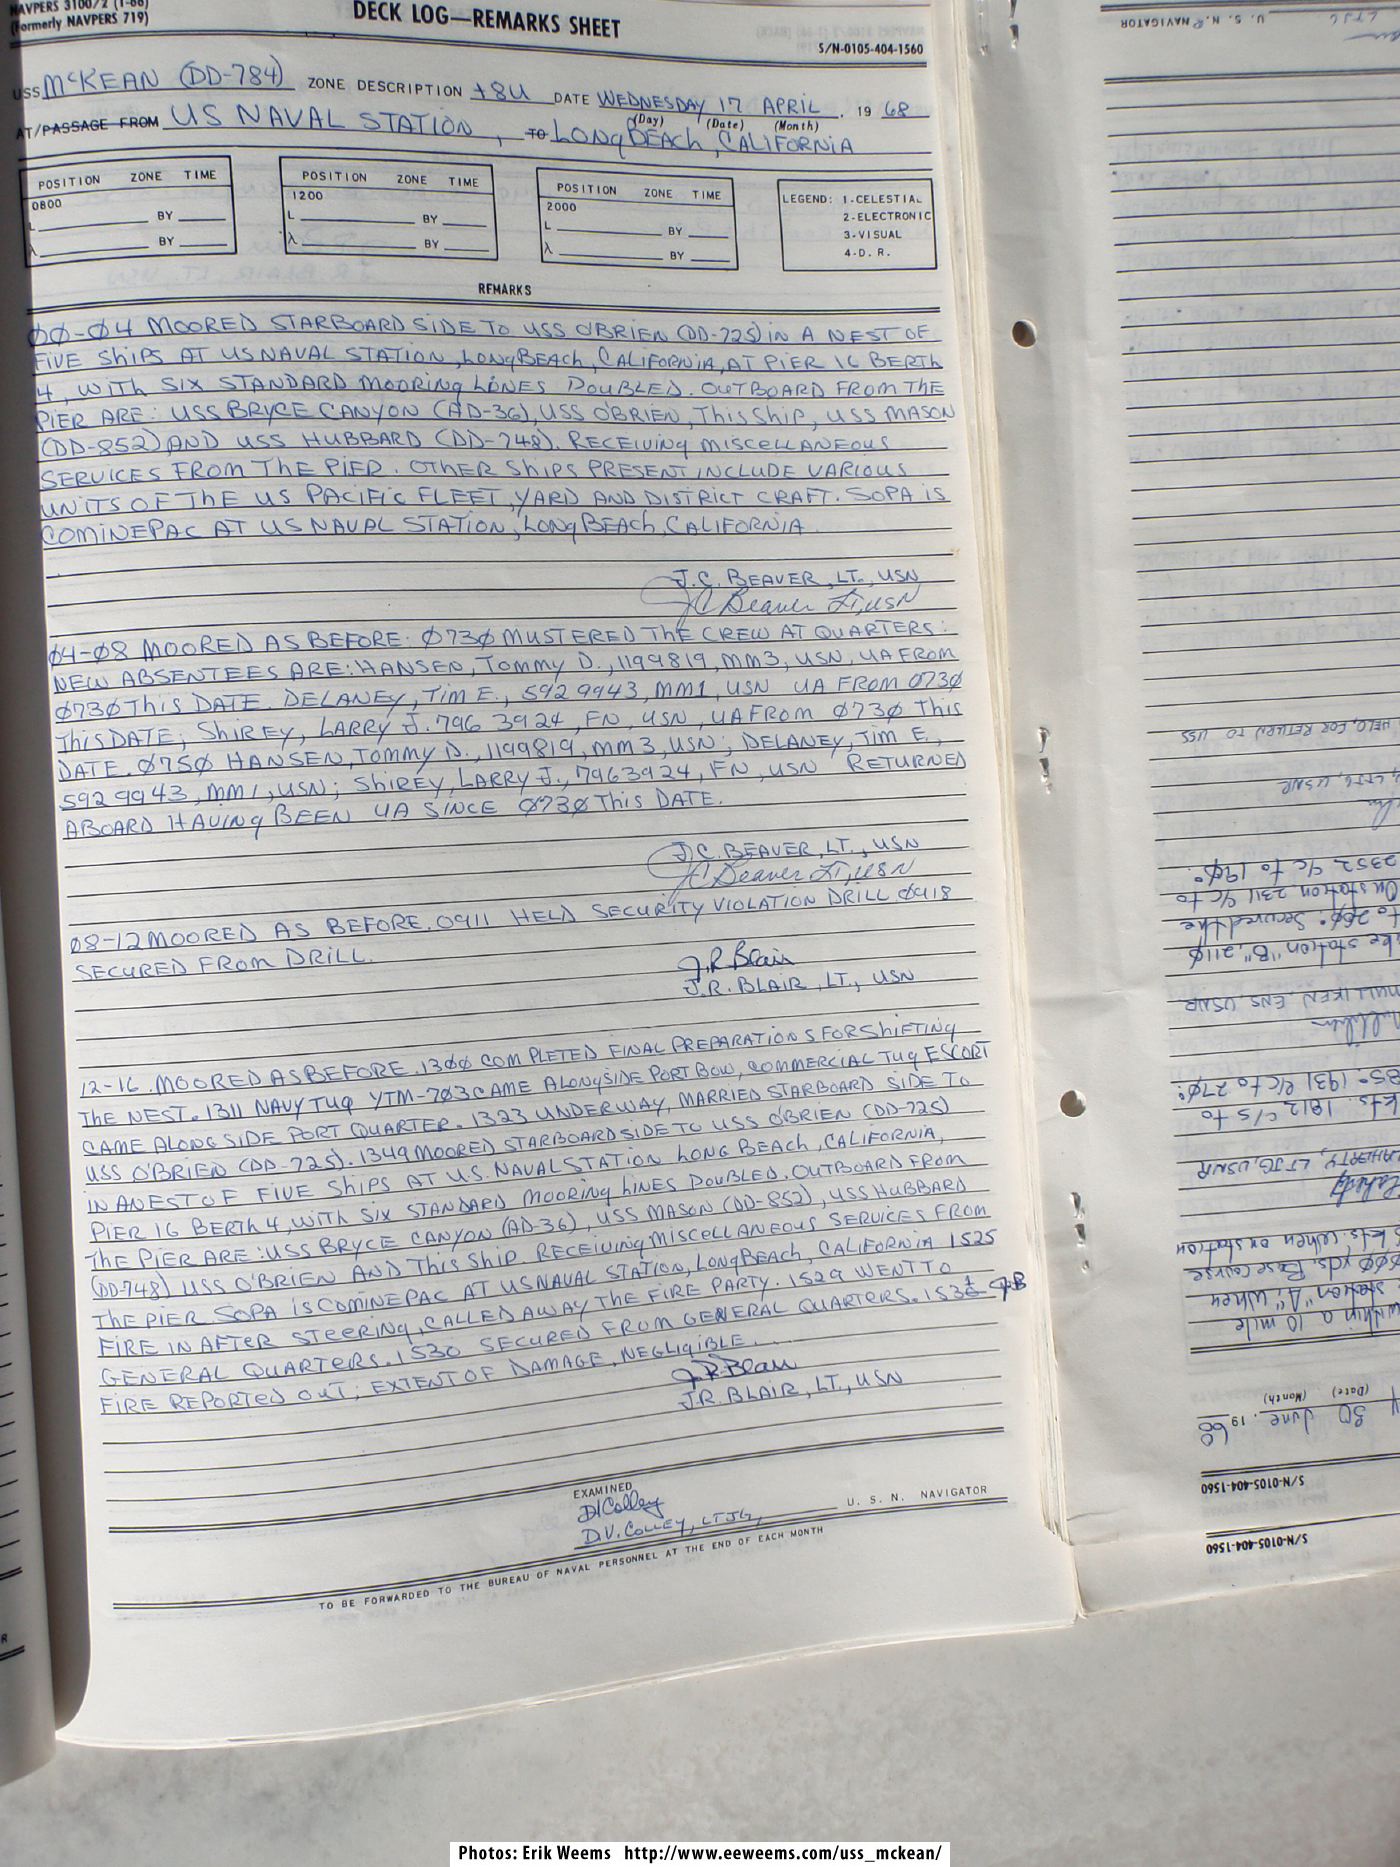 NAVPERS 3100/2 (1-66)
(Formerly NAVPERS 719)
DECK LOG—REMARKS SHEET
S/N-0105-404-1560
USS McKEAN (DD-784) ZONE DESCRIPTION +8U DATE WEDNESDAY 17 APRIL, 19 68
(Day) (Date) (Month)
AT/PASSAGE FROM US NAVAL STATION, TO LONG BEACH, CALIFORNIA
POSITION ZONE TIME
0800
L BY
λ BY
POSITION ZONE TIME
1200
L BY
λ BY
POSITION ZONE TIME
2000
L BY
λ BY
LEGEND: 1-CELESTIAL
2-ELECTRONIC
3-VISUAL
4-D. R.
REMARKS
ØØ-Ø4 MOORED STARBOARD SIDE TO USS O'BRIEN (DD-725) IN A NEST OF
FIVE SHIPS AT US NAVAL STATION, LONG BEACH, CALIFORNIA, AT PIER 16 BERTH
4, WITH SIX STANDARD MOORING LINES DOUBLED. OUTBOARD FROM THE
PIER ARE: USS BRYCE CANYON (AD-36), USS O'BRIEN, THIS SHIP, USS MASON
(DD-852) AND USS HUBBARD (DD-748). RECEIVING MISCELLANEOUS
SERVICES FROM THE PIER. OTHER SHIPS PRESENT INCLUDE VARIOUS
UNITS OF THE US PACIFIC FLEET, YARD AND DISTRICT CRAFT. SOPA IS
COMINEPAC AT US NAVAL STATION, LONG BEACH, CALIFORNIA.
J.C. BEAVER, LT., USN
JC Beaver Lt, USN
Ø4-Ø8 MOORED AS BEFORE: Ø73Ø MUSTERED THE CREW AT QUARTERS:
NEW ABSENTEES ARE: HANSEN, TOMMY D., 1199819, MM3, USN, UA FROM
Ø73Ø THIS DATE. DELANEY, TIM E., 592 9943, MM1, USN UA FROM Ø73Ø
THIS DATE; SHIREY, LARRY J. 796 3924, FN, USN, UA FROM Ø73Ø THIS
DATE. Ø75Ø HANSEN, TOMMY D., 1199819, MM3, USN; DELANEY, TIM E.,
592 9943, MM1, USN; SHIREY, LARRY J., 7963924, FN, USN RETURNED
ABOARD HAVING BEEN UA SINCE Ø73Ø THIS DATE.
J.C. BEAVER, LT., USN
JC Beaver Lt, USN
Ø8-12 MOORED AS BEFORE. 0911 HELD SECURITY VIOLATION DRILL 0918
SECURED FROM DRILL.
J.R. Blair
J.R. BLAIR, LT., USN
12-16. MOORED AS BEFORE. 13ØØ COMPLETED FINAL PREPARATIONS FOR SHIFTING
THE NEST. 1311 NAVY TUG YTM-7Ø3 CAME ALONGSIDE PORT BOW, COMMERCIAL TUG ESCORT
CAME ALONG SIDE PORT QUARTER. 1323 UNDERWAY, MARRIED STARBOARD SIDE TO
USS O'BRIEN (DD-725). 1349 MOORED STARBOARD SIDE TO USS O'BRIEN (DD-725)
IN A NEST OF FIVE SHIPS AT U.S. NAVAL STATION LONG BEACH, CALIFORNIA,
PIER 16 BERTH 4, WITH SIX STANDARD MOORING LINES DOUBLED. OUTBOARD FROM
THE PIER ARE: USS BRYCE CANYON (AD-36), USS MASON (DD-852), USS HUBBARD
(DD-748) USS O'BRIEN AND THIS SHIP. RECEIVING MISCELLANEOUS SERVICES FROM
THE PIER SOPA IS COMINEPAC AT US NAVAL STATION, LONG BEACH, CALIFORNIA 1525
FIRE IN AFTER STEERING, CALLED AWAY THE FIRE PARTY. 1529 WENT TO
GENERAL QUARTERS. 1530 SECURED FROM GENERAL QUARTERS. 153
FIRE REPORTED OUT; EXTENT OF DAMAGE, NEGLIGIBLE.
J.R. Blair
J.R. BLAIR, LT., USN
EXAMINED
DVColley
D.V. COLLEY, LTJG, U. S. N. NAVIGATOR
TO BE FORWARDED TO THE BUREAU OF NAVAL PERSONNEL AT THE END OF EACH MONTH
S/N-0105-404-1560
S/N-0105-404-1560
30 June 1968
(Date) (Month)
within a 10 mile
station "A", when
500 yds. Base course
kts. when on station
LTJG, USNR
kts. 1812 c/s to
1931 c/c to 270°.
MULLIKEN, ENS, USNR
station "B", 2110
to 200°. Secured the
On station 2311 c/c to
2352 c/c to 190°.
LTJG, USNR
HELO, FOR RETURN TO USS
LTJG U. S. N. R NAVIGATOR
Photos: Erik Weems http://www.eeweems.com/uss_mckean/